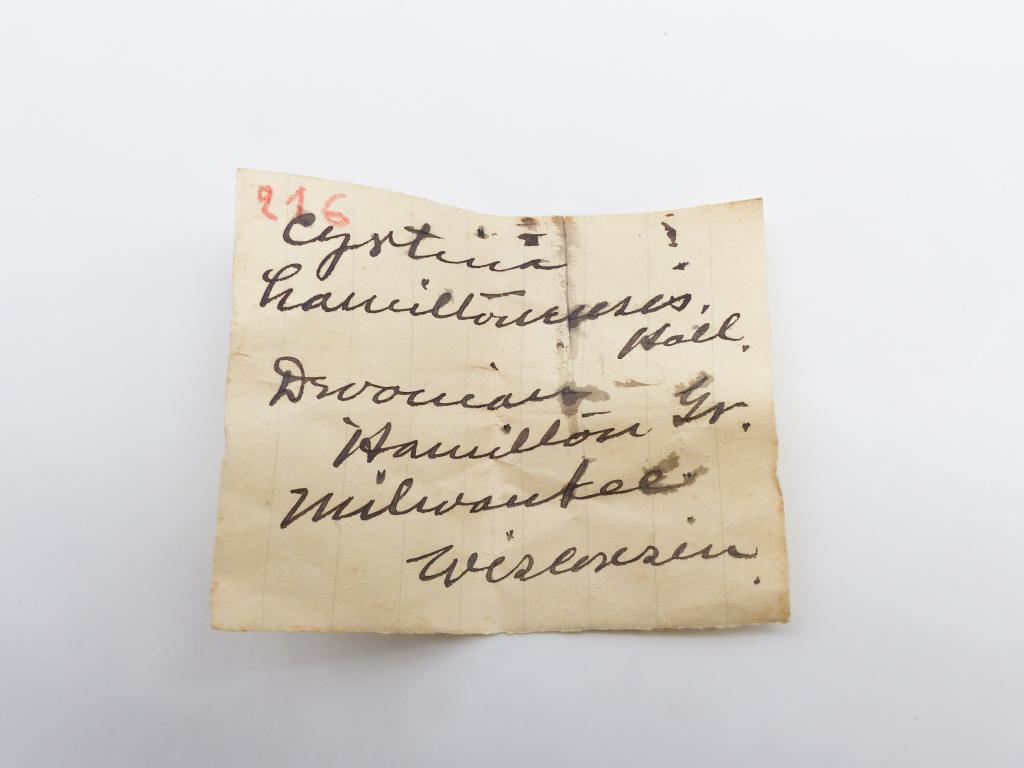 216
Cyrtina
hamiltonensis.
Hall.
Devonian
Hamilton Gr.
Milwaukee
Wisconsin.